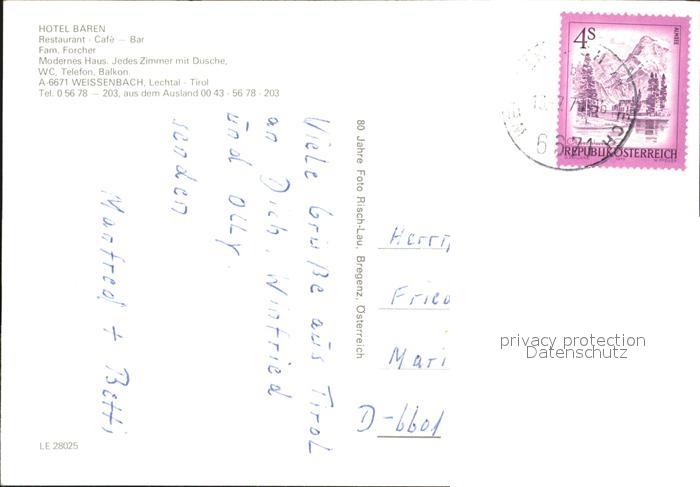 HOTEL BÄREN
Restaurant - Café — Bar
Fam. Forcher
Modernes Haus. Jedes Zimmer mit Dusche,
WC, Telefon, Balkon.
A-6671 WEISSENBACH, Lechtal - Tirol
Tel. 0 56 78 — 203, aus dem Ausland 00 43 - 56 78 - 203
4s
ALMSEE
REPUBLIK ÖSTERREICH
6671
Viele Grüße aus Tirol
an Dich, Winfried
und Olly.
senden
Manfred + Betti
80 Jahre Foto Risch-Lau, Bregenz, Österreich
Herrn
Fried
Mari
D-6601
privacy protection
Datenschutz
LE 28025